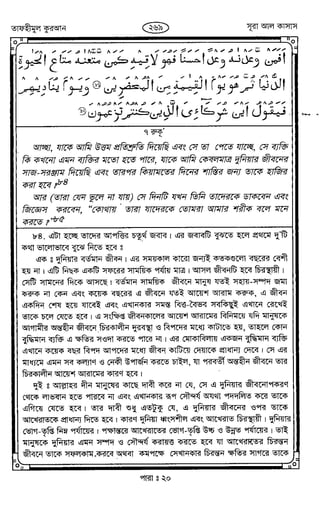 তাফহীমুল কুরআন ২৬৯ সূরা আল কাসাস
أَفَمَنْ وَعَدْنٰهُ وَعْدًا حَسَنًا فَهُوَ لَاقِيْهِ كَمَنْ مَّتَّعْنٰهُ مَتَاعَ الْحَيٰوةِ
الدُّنْيَا ثُمَّ هُوَ يَوْمَ الْقِيٰمَةِ مِنَ الْمُحْضَرِيْنَ ۝ وَيَوْمَ يُنَادِيْهِمْ
فَيَقُوْلُ اَيْنَ شُرَكَآءِىَ الَّذِيْنَ كُنْتُمْ تَزْعُمُوْنَ ۝
৭ রুকু'
আচ্ছা, যাকে আমি উত্তম প্রতিশ্রুতি দিয়েছি এবং সে তা পেতে যাচ্ছে, সে ব্যক্তি
কি কখনো এমন ব্যক্তির মতো হতে পারে, যাকে আমি কেবলমাত্র দুনিয়ার জীবনের
সাজ-সরঞ্জাম দিয়েছি এবং তারপর কিয়ামতের দিনের শাস্তির জন্য তাকে হাজির
করা হবে?৮৪
আর (তারা যেন ভুলে না যায়) সে দিনটি যখন তিনি তাদেরকে ডাকবেন এবং
জিজ্ঞেস করবেন, "কোথায় তারা যাদেরকে তোমরা আমার শরীক বলে মনে
করতে?"৮৫
৮৪. এটা হচ্ছে তাদের আপত্তির চতুর্থ জবাব। এর জবাবটি বুঝতে হলে প্রথমে দু'টি
কথা ভালোভাবে বুঝে নিতে হবে ঃ
এক ঃ দুনিয়ার বর্তমান জীবন। এর সময়কাল কারো জন্যই কতকগুলো বছরের বেশী
হয় না। এটি নিছক একটি সফরের সাময়িক পর্যায় মাত্র। আসল জীবনটি হবে চিরস্থায়ী।
সেটি সামনের দিকে আসছে। বর্তমান সাময়িক জীবনে মানুষ যতই সহায়-সম্পদ জমা
করুক না কেন এবং কয়েক বছরের এ জীবনে যতই আয়েশ আরাম করুক, এ জীবন
একদিন শেষ হয়ে যাবেই এবং এখানকার সমস্ত বিত্ত-বৈভব সবকিছুই এখানে রেখেই
তাকে চলে যেতে হবে। এ সংক্ষিপ্ত জীবনকালের আয়েশ আরামের বিনিময়ে যদি মানুষকে
আগামীর অন্তহীন জীবনে চিরকালীন দুরবস্থা ও বিপদের মধ্যে কাটাতে হয়, তাহলে কোন
বুদ্ধিমান ব্যক্তি এ ক্ষতির সওদা করতে পারে না। এর মোকাবিলায় একজন বুদ্ধিমান ব্যক্তি
এখানে কয়েক বছর বিপদ আপদের মধ্যে জীবন কাটিয়ে দেয়াকে প্রাধান্য দেবে। সে এর
মাধ্যমে এমন সব কল্যাণ ও নেকী উপার্জন করতে চাইবে, যা পরবর্তী অন্তহীন জীবনে তার
চিরকালীন আয়েশ আরামের কারণ হবে।
দুই ঃ আল্লাহর দীন মানুষের কাছে দাবী করে না যে, সে এ দুনিয়ার জীবনোপকরণ
থেকে লাভবান হতে পারবে না এবং এখানকার রূপ সৌন্দর্য অযথা পদদলিত করে তাকে
এগিয়ে যেতে হবে। তার দাবী শুধু এতটুকু যে, এ দুনিয়ার জীবনের ওপর তাকে
আখেরাতকে প্রাধান্য দিতে হবে। কারণ দুনিয়া ধ্বংসশীল এবং আখেরাত চিরস্থায়ী। দুনিয়ার
ভোগ-তৃপ্তি নিম্ন পর্যায়ের। পক্ষান্তরে আখেরাতের ভোগ-তৃপ্তি উচ্চ ও উন্নত পর্যায়ের। তাই
মানুষকে দুনিয়ার এমন সম্পদ ও সৌন্দর্য করায়ত্ত করতে হবে যা আখেরাতের চিরন্তন
জীবনে তাকে সফলকাম করবে অথবা কমপক্ষে সেখানকার চিরন্তন ক্ষতির সাগরে তাকে
পারা ঃ ২০